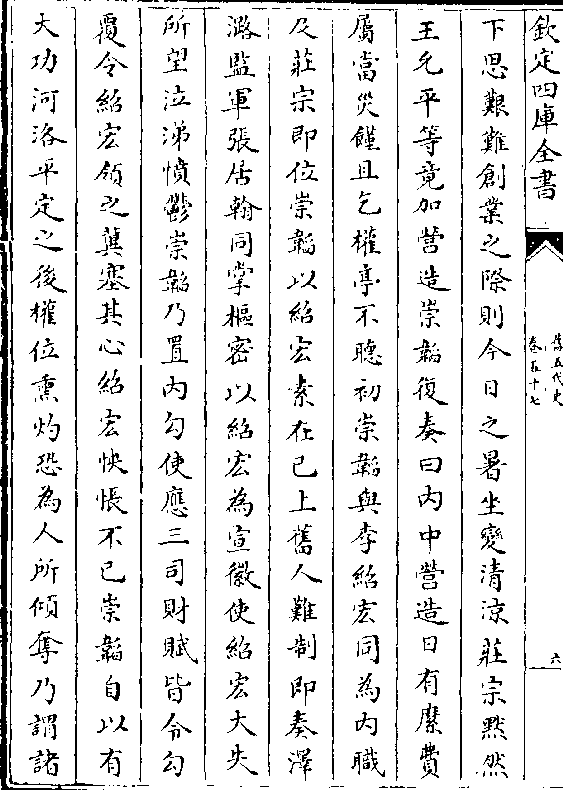 欽定四庫全書
舊五代史
卷五十七
六
下思艱難創業之際則今日之暑坐變清涼莊宗黙然
王允平等竟加營造崇韜復奏曰内中營造日有縻費
屬當災饉且乞權停不聽初崇韜與李紹宏同為内職
及莊宗即位崇韜以紹宏素在已上舊人難制即奏澤
潞監軍張居翰同掌樞密以紹宏為宣徽使紹宏大失
所望泣涕憤鬱崇韜乃置内勾使應三司財賦皆令勾
覆令紹宏領之冀塞其心紹宏怏悵不已崇韜自以有
大功河洛平定之後權位熏灼恐為人所傾奪乃謂諸